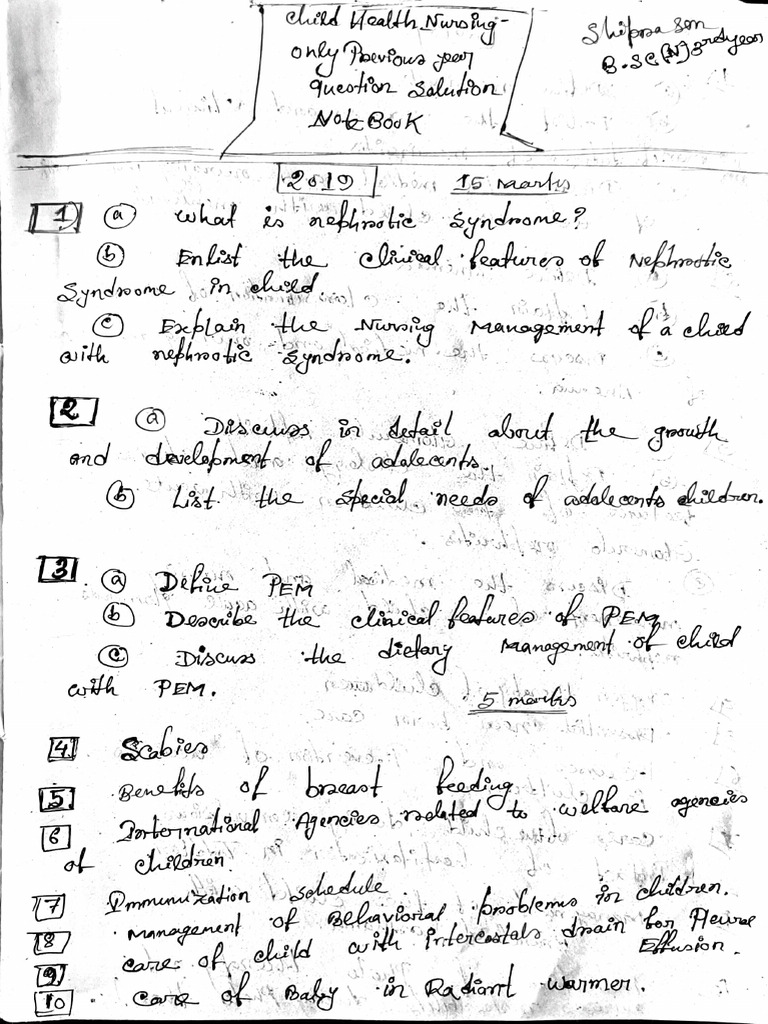 Child Health Nursing-
only Previous year
question solution
Note Book
B.SC(N) 3rd year
2019 15 marks
1 a what is nephrotic syndrome?
b Enlist the clinical features of Nephrotic
Syndrome in child.
c Explain the Nursing Management of a child
with nephrotic syndrome.
2 a Discuss in detail about the growth
and development of adolecents.
b List the special needs of adolecents children.
3 a Define PEM
b Describe the clinical features of PEM
c Discuss the dietary Management of child
with PEM.
5 marks
4 Scabies
5 Benefits of breast feeding
6 International Agencies related to welfare agencies
of children.
7 Immunization schedule.
8 Management of Behavioral problems in children.
9 care of child with intercostals drain for Pleural
Effusion.
10 care of Baby in Radiant warmer.